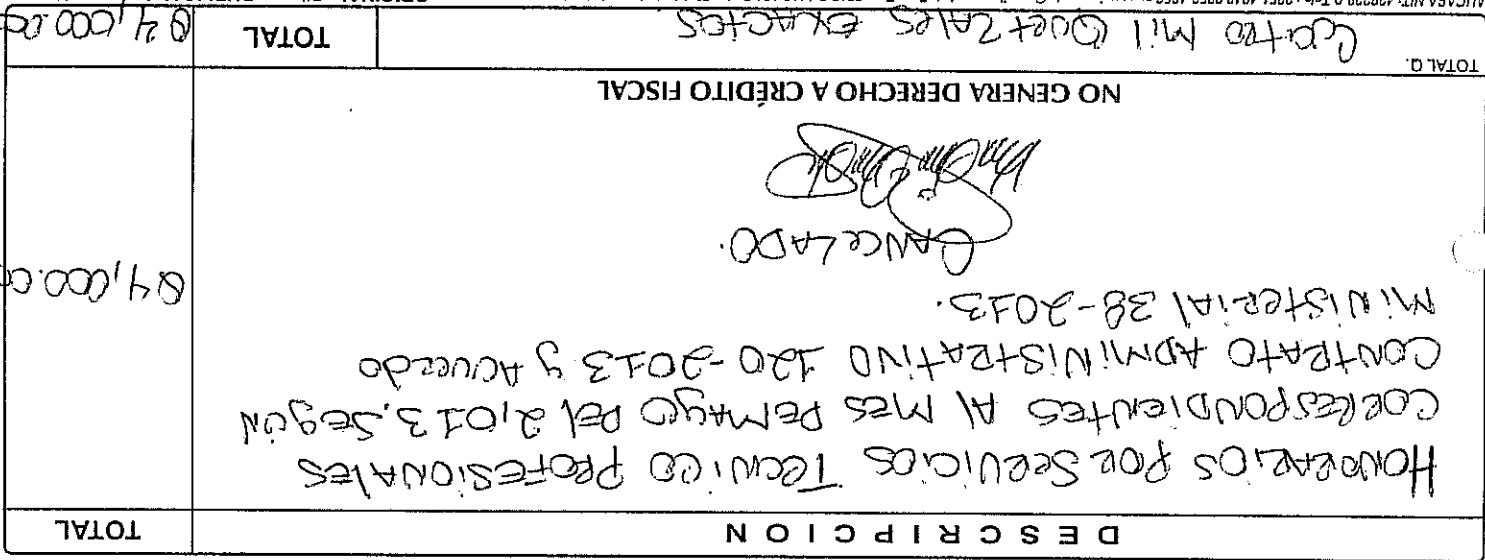 DESCRIPCION TOTAL
HONORARIOS POR SERVICIOS TECNICO PROFESIONALES
CORRESPONDIENTES Al MES DE MAYO DEL 2,013, SEGÚN
CONTRATO ADMINISTRATIVO 120-2013 y Acuerdo
MINISTERIAL 38-2013. Q4,000.00
CANCELADO.
NO GENERA DERECHO A CRÉDITO FISCAL
TOTAL Q. Cuatro Mil Quetzales EXACTOS. TOTAL Q4,000.00